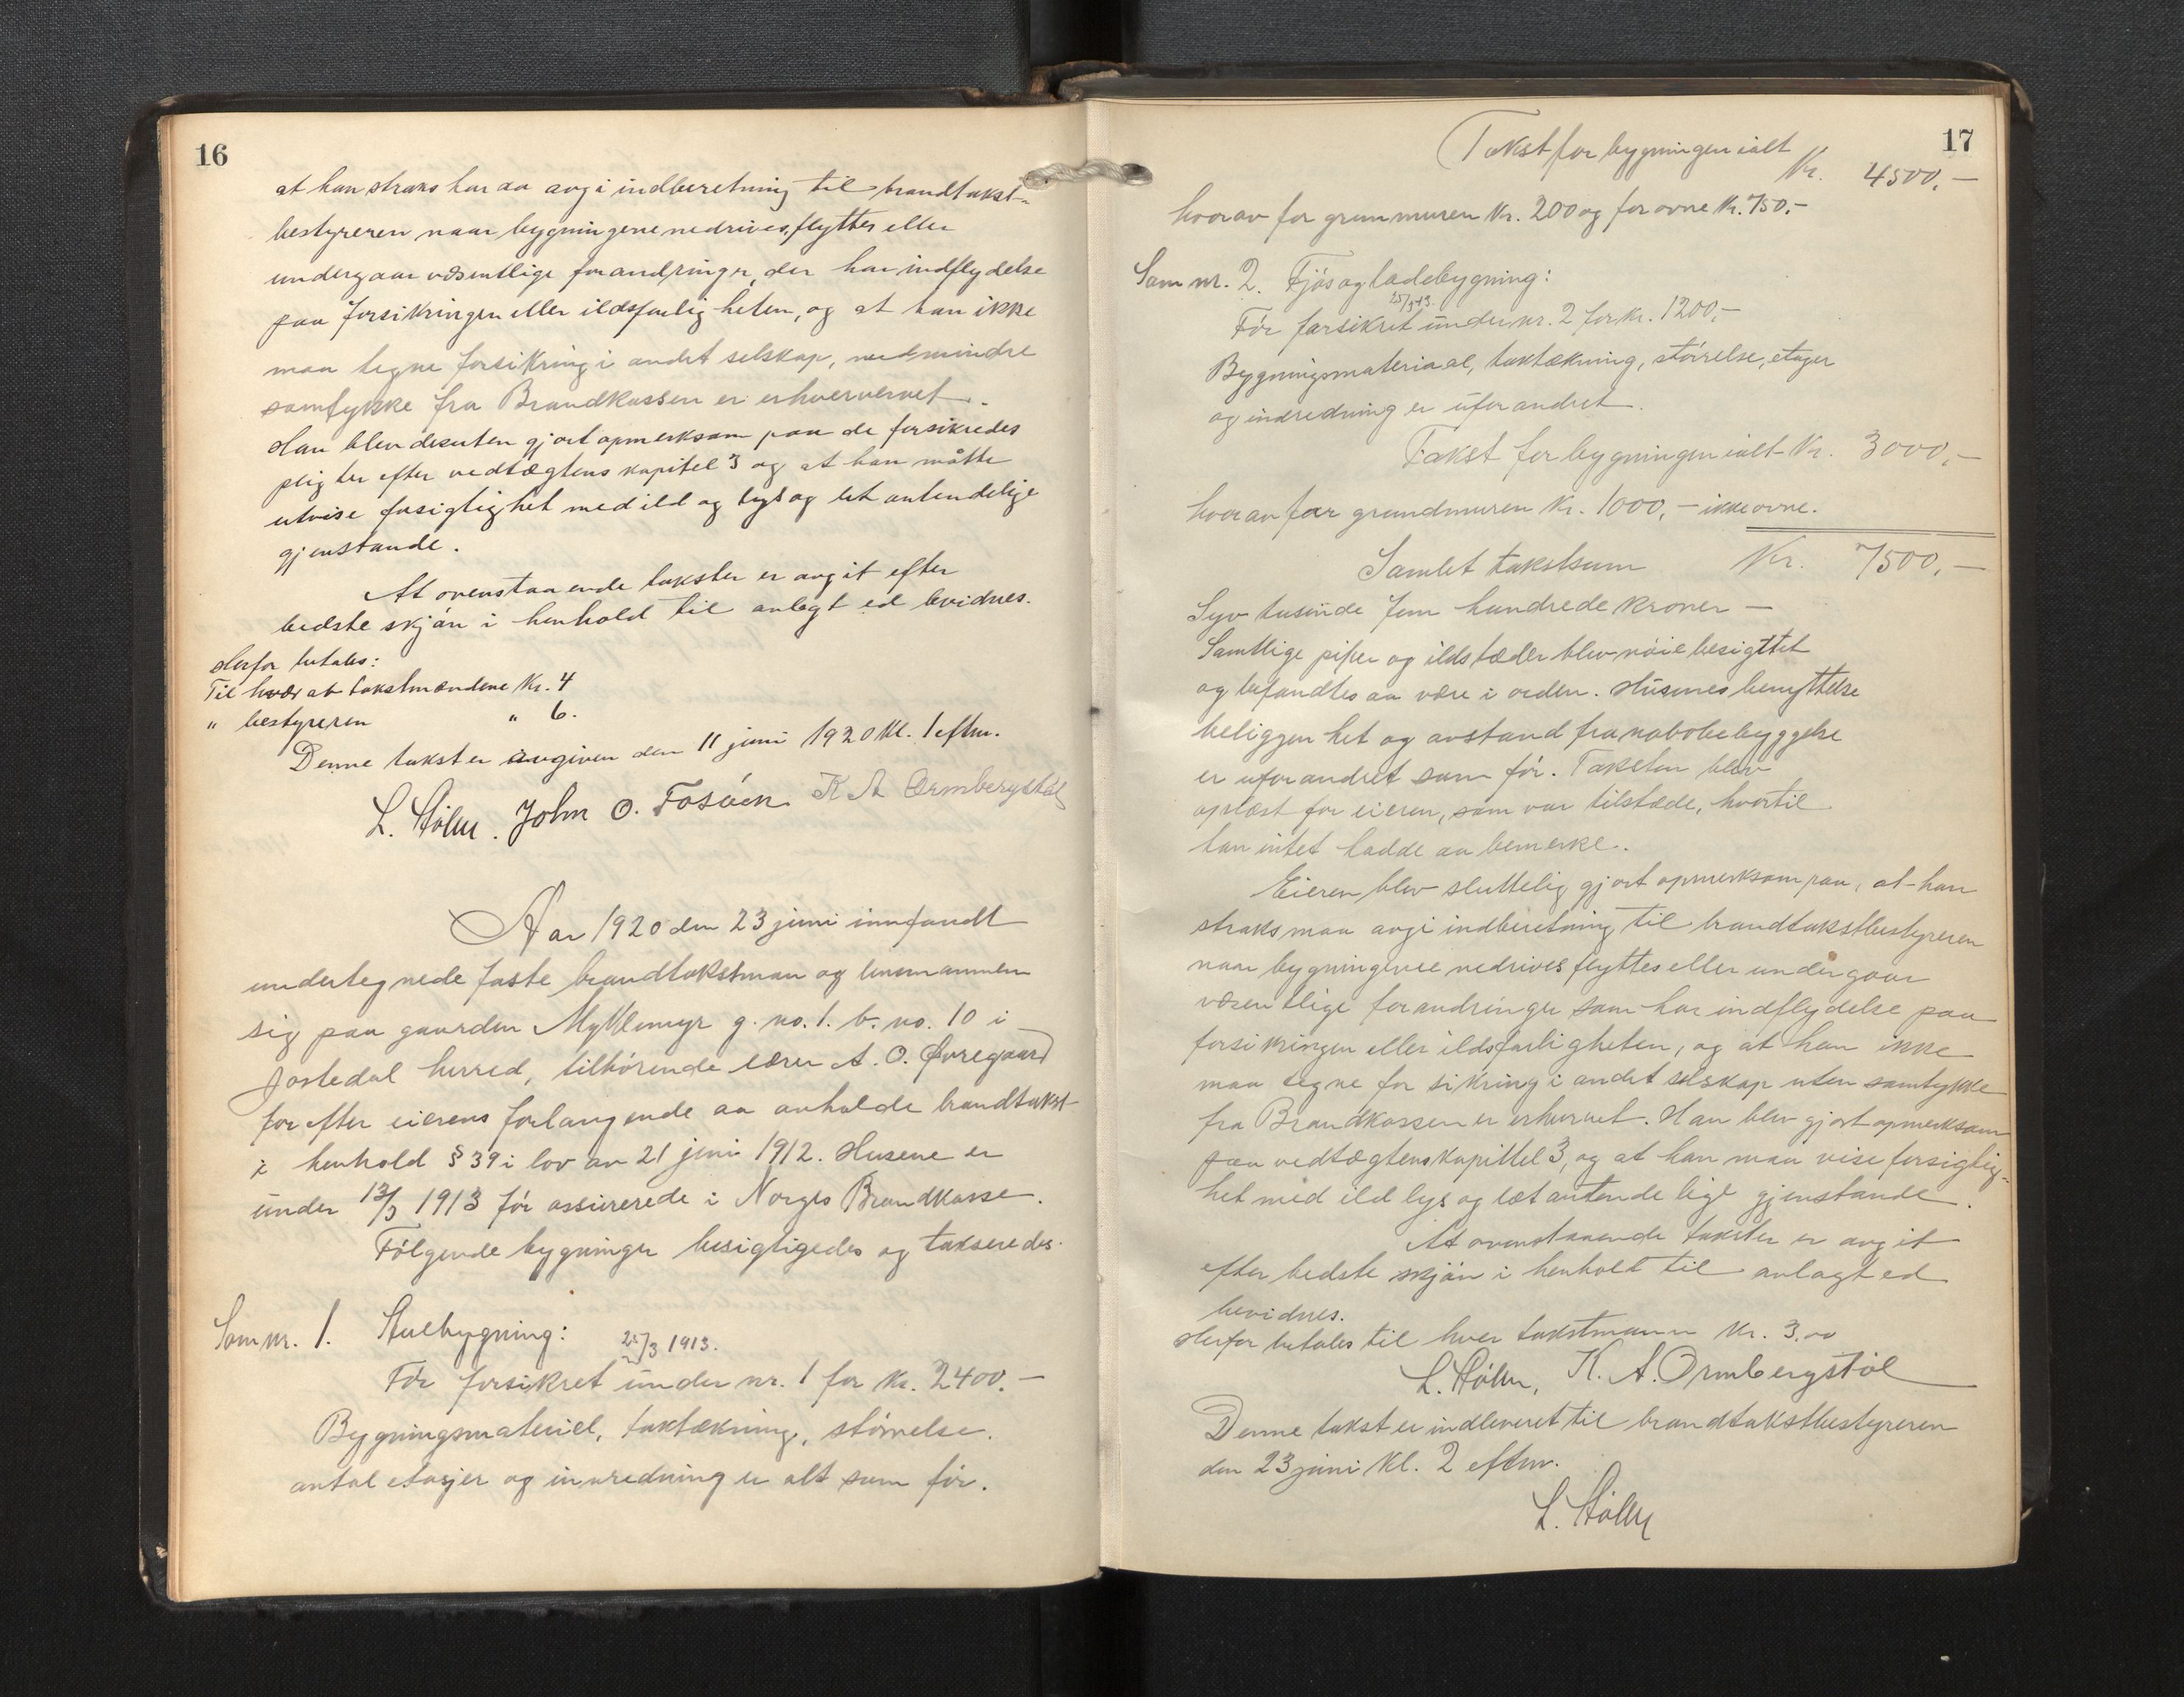 16
at han straks har aa avgi indberetning til brandtakst-
bestyreren naar bygningene nedrives, flyttes eller
undergaar væsentlige forandringer, der har indflydelse
paa forsikringen eller ildsfarligheten, og at han ikke
maa tegne forsikring i andet selskap, medmindre
samtykke fra Brandkassen er erhvervet.
Han blev desuten gjort opmerksom paa de forsikredes
pligter efter vedtægtens kapitel 3 og at han måtte
utvise forsigtighet med ild og lys og let antendelige
gjenstande.
At ovenstaaende takster er avgit efter
bedste skjön i henhold til avlagt ed bevidnes.
Herfor betales:
Til hvær av takstmændene Kr. 4
" bestyreren " 6.
Denne takst er avgiven den 11 juni 1920 Kl. 1 eftm.
L. Stölen. John O. Fosöen K A Ormbergstöl
Aar 1920 den 23 juni innfandt
undertegnede faste brandtakstman og lensmannen
sig paa gaarden Myklemyr g. no. 1. b. no. 10 i
Jostedal herred, tilhörende lærer A. O. Øvregaard
for efter eierens forlangende aa avholde brandtakst
i henhold § 39 i lov av 21 juni 1912. Husene er
under 13/3 1913 för assurerede i Norges Brandkasse.
Fölgende bygninger besigtigedes og takseredes.
Som nr. 1. Stuebygning:
25/3 1913.
För forsikret under nr. 1 for Kr. 2400.-
Bygningsmateriel, taktækning, störrelse.
antal etasjer og innredning er alt som för.
17
Takst for bygningen ialt
Kr. 4500,-
hvorav for grunmuren Kr. 200 og for ovne Kr. 750.-
Som nr. 2. Fjös og ladebygning:
25/3 13.
För forsikret under nr. 2 for kr. 1200,-
Bygningsmateriael, taktækning, störrelse, etager
og indredning er uforandret.
Takst for bygningen ialt Kr. 3000,-
hvorav for grundmuren Kr. 1000,- ikke ovne.
Samlet takstsum Kr. 7500,-
Syv tusinde fem hundrede kroner -
Samtlige piper og ildstæder blev nöie besigttet
og befandtes aa være i orden. Husenes benyttelse
beliggenhet og avstand fra nabobebyggelse
er uforandret som för. Taksten blev
oplæst for eieren, som var tilstæde, hvortil
han intet hadde aa bemerke.
Eieren blev sluttelig gjort opmerksom paa, at han
straks maa avgi indberetning til brandtakstbestyreren
naar bygningene nedrives flyttes eller undergaar
væsentlige forandringer som har indflydelse paa
forsikringen eller ildsfarligheten, og at han ikke
maa tegne forsikring i andet selskap uten samtykke
fra Brandkassen er erhvervet. Han blev gjort opmerksom
paa vedtægtens kapittel 3, og at han maa vise forsigtig-
het med ild lys og let antendelige gjenstande.
At ovenstaaende takster er avgit
efter bedste skjön i henhold til avlagt ed
bevidnes.
Herfor betales til hver takstmann Kr. 3.00
L. Stölen, K. A. Ormbergstöl
Denne takst er indleveret til brandtakstbestyreren
den 23 juni Kl. 2 eftm.
L. Stölen